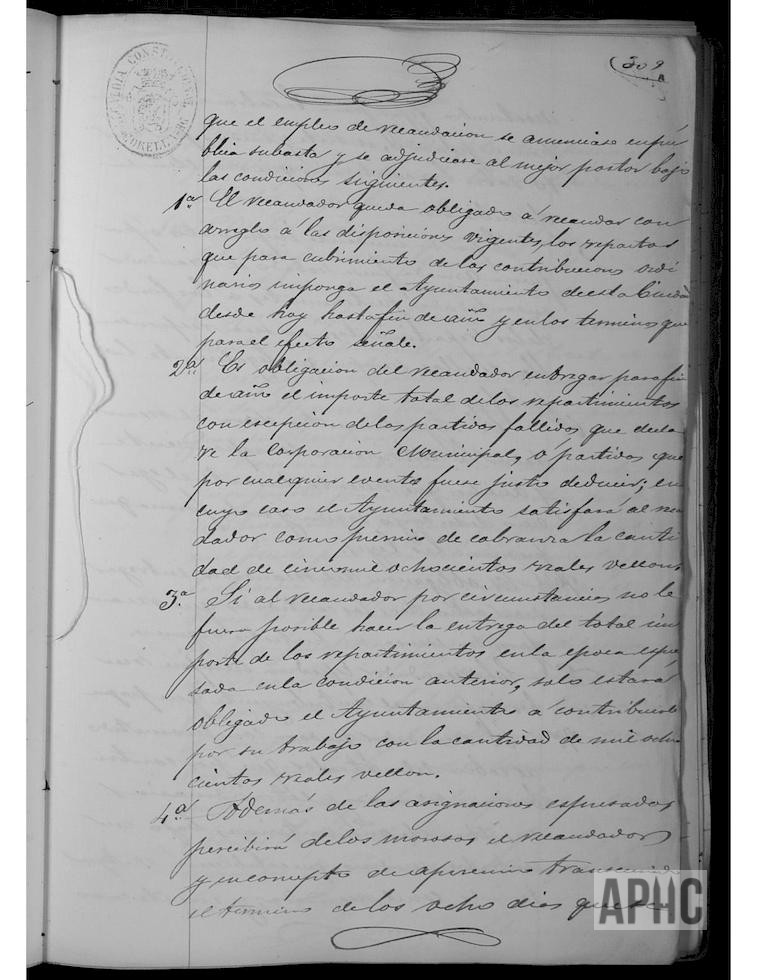 309
que el empleo de recaudacion se anunciase en pú-
blica subasta y se adjudicase al mejor postor bajo
las condiciones siguientes.
1.ª El recaudador queda obligado á recaudar con
arreglo á las disposiciones vigentes, los repartos
que para cubrimiento de las contribuciones ordi-
narias imponga el Ayuntamiento de esta Ciudad
desde hoy hasta fin de año y en los terminos que
para el efecto señale.
2.ª Es obligacion del recaudador entregar para fin
de año el importe total de los repartimientos
con escepcion de las partidas fallidas que decla-
re la Corporacion Municipal, ó partidas que
por cualquier evento fuese justo deducir; en
cuyo caso el Ayuntamiento satisfará al recau-
dador como premio de cobranza la canti-
dad de cinco mil ochocientos reales vellon.
3.ª Si al recaudador por circumstancias no le
fuera posible hacer la entrega del total im-
porte de los repartimientos en la epoca espre-
sada en la condicion anterior, solo estará
obligado el Ayuntamiento á contribuirle
por su trabajo con la cantidad de mil ocho-
cientos reales vellon.
4.ª Además de las asignaciones espresadas
percibirá de los morosos el recaudador
y en concepto de apremio transcurrido
el termino de los ocho dias que
APHC